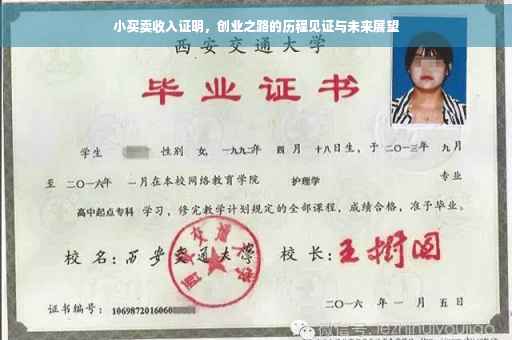 小买卖收入证明，创业之路的历程见证与未来展望
西安交通大学
毕业证书
学生 性别 女，一九九二年 四月 十八日生，于二〇一三年 九月
至 二〇一六年 一月在本校网络教育学院 护理学 专业
高中起点专科 学习，修完教学计划规定的全部课程，成绩合格，准予毕业。
校名：西安交通大学 校长：王树国
西安交通大学
证书编号：1069872016060
二〇一六年一月五日
微信号: jiezhihuiyoujiao